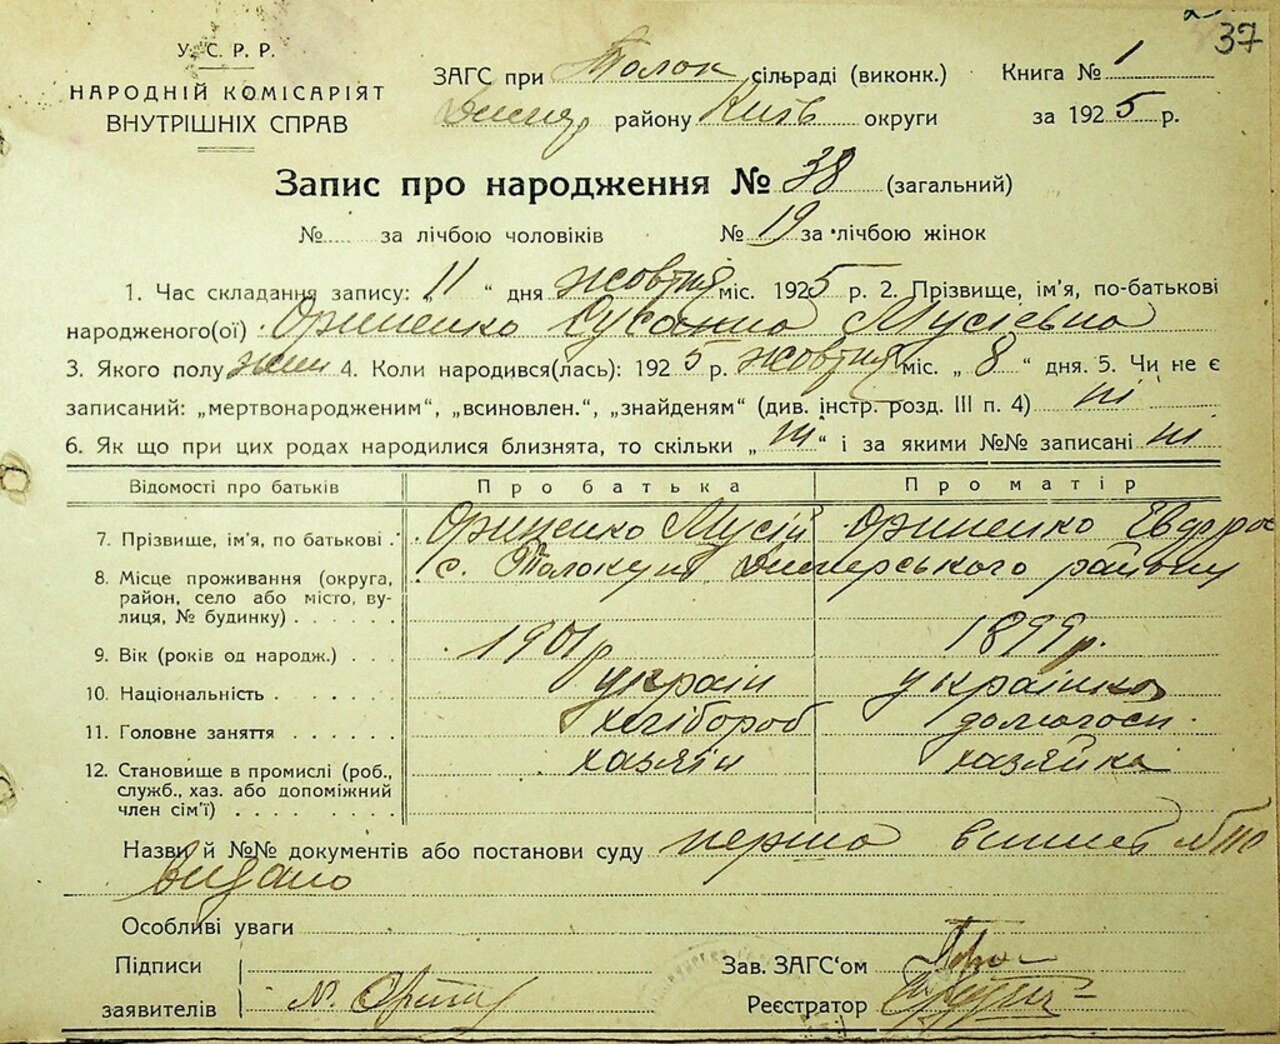 37
У. С. Р. Р.
НАРОДНІЙ КОМІСАРІЯТ
ВНУТРІШНІХ СПРАВ
ЗАГС при Толок сільраді (виконк.) Книга № 1
Димер району Київ округи за 1925 р.
Запис про народження № 38 (загальний)
№ за лічбою чоловіків № 19 за лічбою жінок
1. Час складання запису: „ 11 “ дня жовтня міс. 1925 р. 2. Прізвище, ім'я, по-батькові
народженого(ої) Ориненко Сусанна Мусіевна
3. Якого полу жен 4. Коли народився(лась): 1925 р. жовтня міс. „ 8 “ дня. 5. Чи не є
записаний: „мертвонародженим“, „всиновлен.“, „знайденям“ (див. інстр. розд. III п. 4) ні
6. Як що при цих родах народилися близнята, то скільки „ ні “ і за якими №№ записані ні
Відомості про батьків Про батька Про матір
7. Прізвище, ім'я, по батькові Ориненко Мусій Ориненко
8. Місце проживання (округа, с. Толокунь Димерського району
район, село або місто, ву-
лиця, № будинку)
9. Вік (років од народж.) 1901 р 1899 р.
10. Національність україн українка
11. Головне заняття хлібороб
12. Становище в промислі (роб., хазяїн хазяйка
служб., хаз. або допоміжний
член сім'ї)
Назви й №№ документів або постанови суду перша
видано
Особливі уваги
Підписи Зав. ЗАГС'ом
заявителів Реєстратор